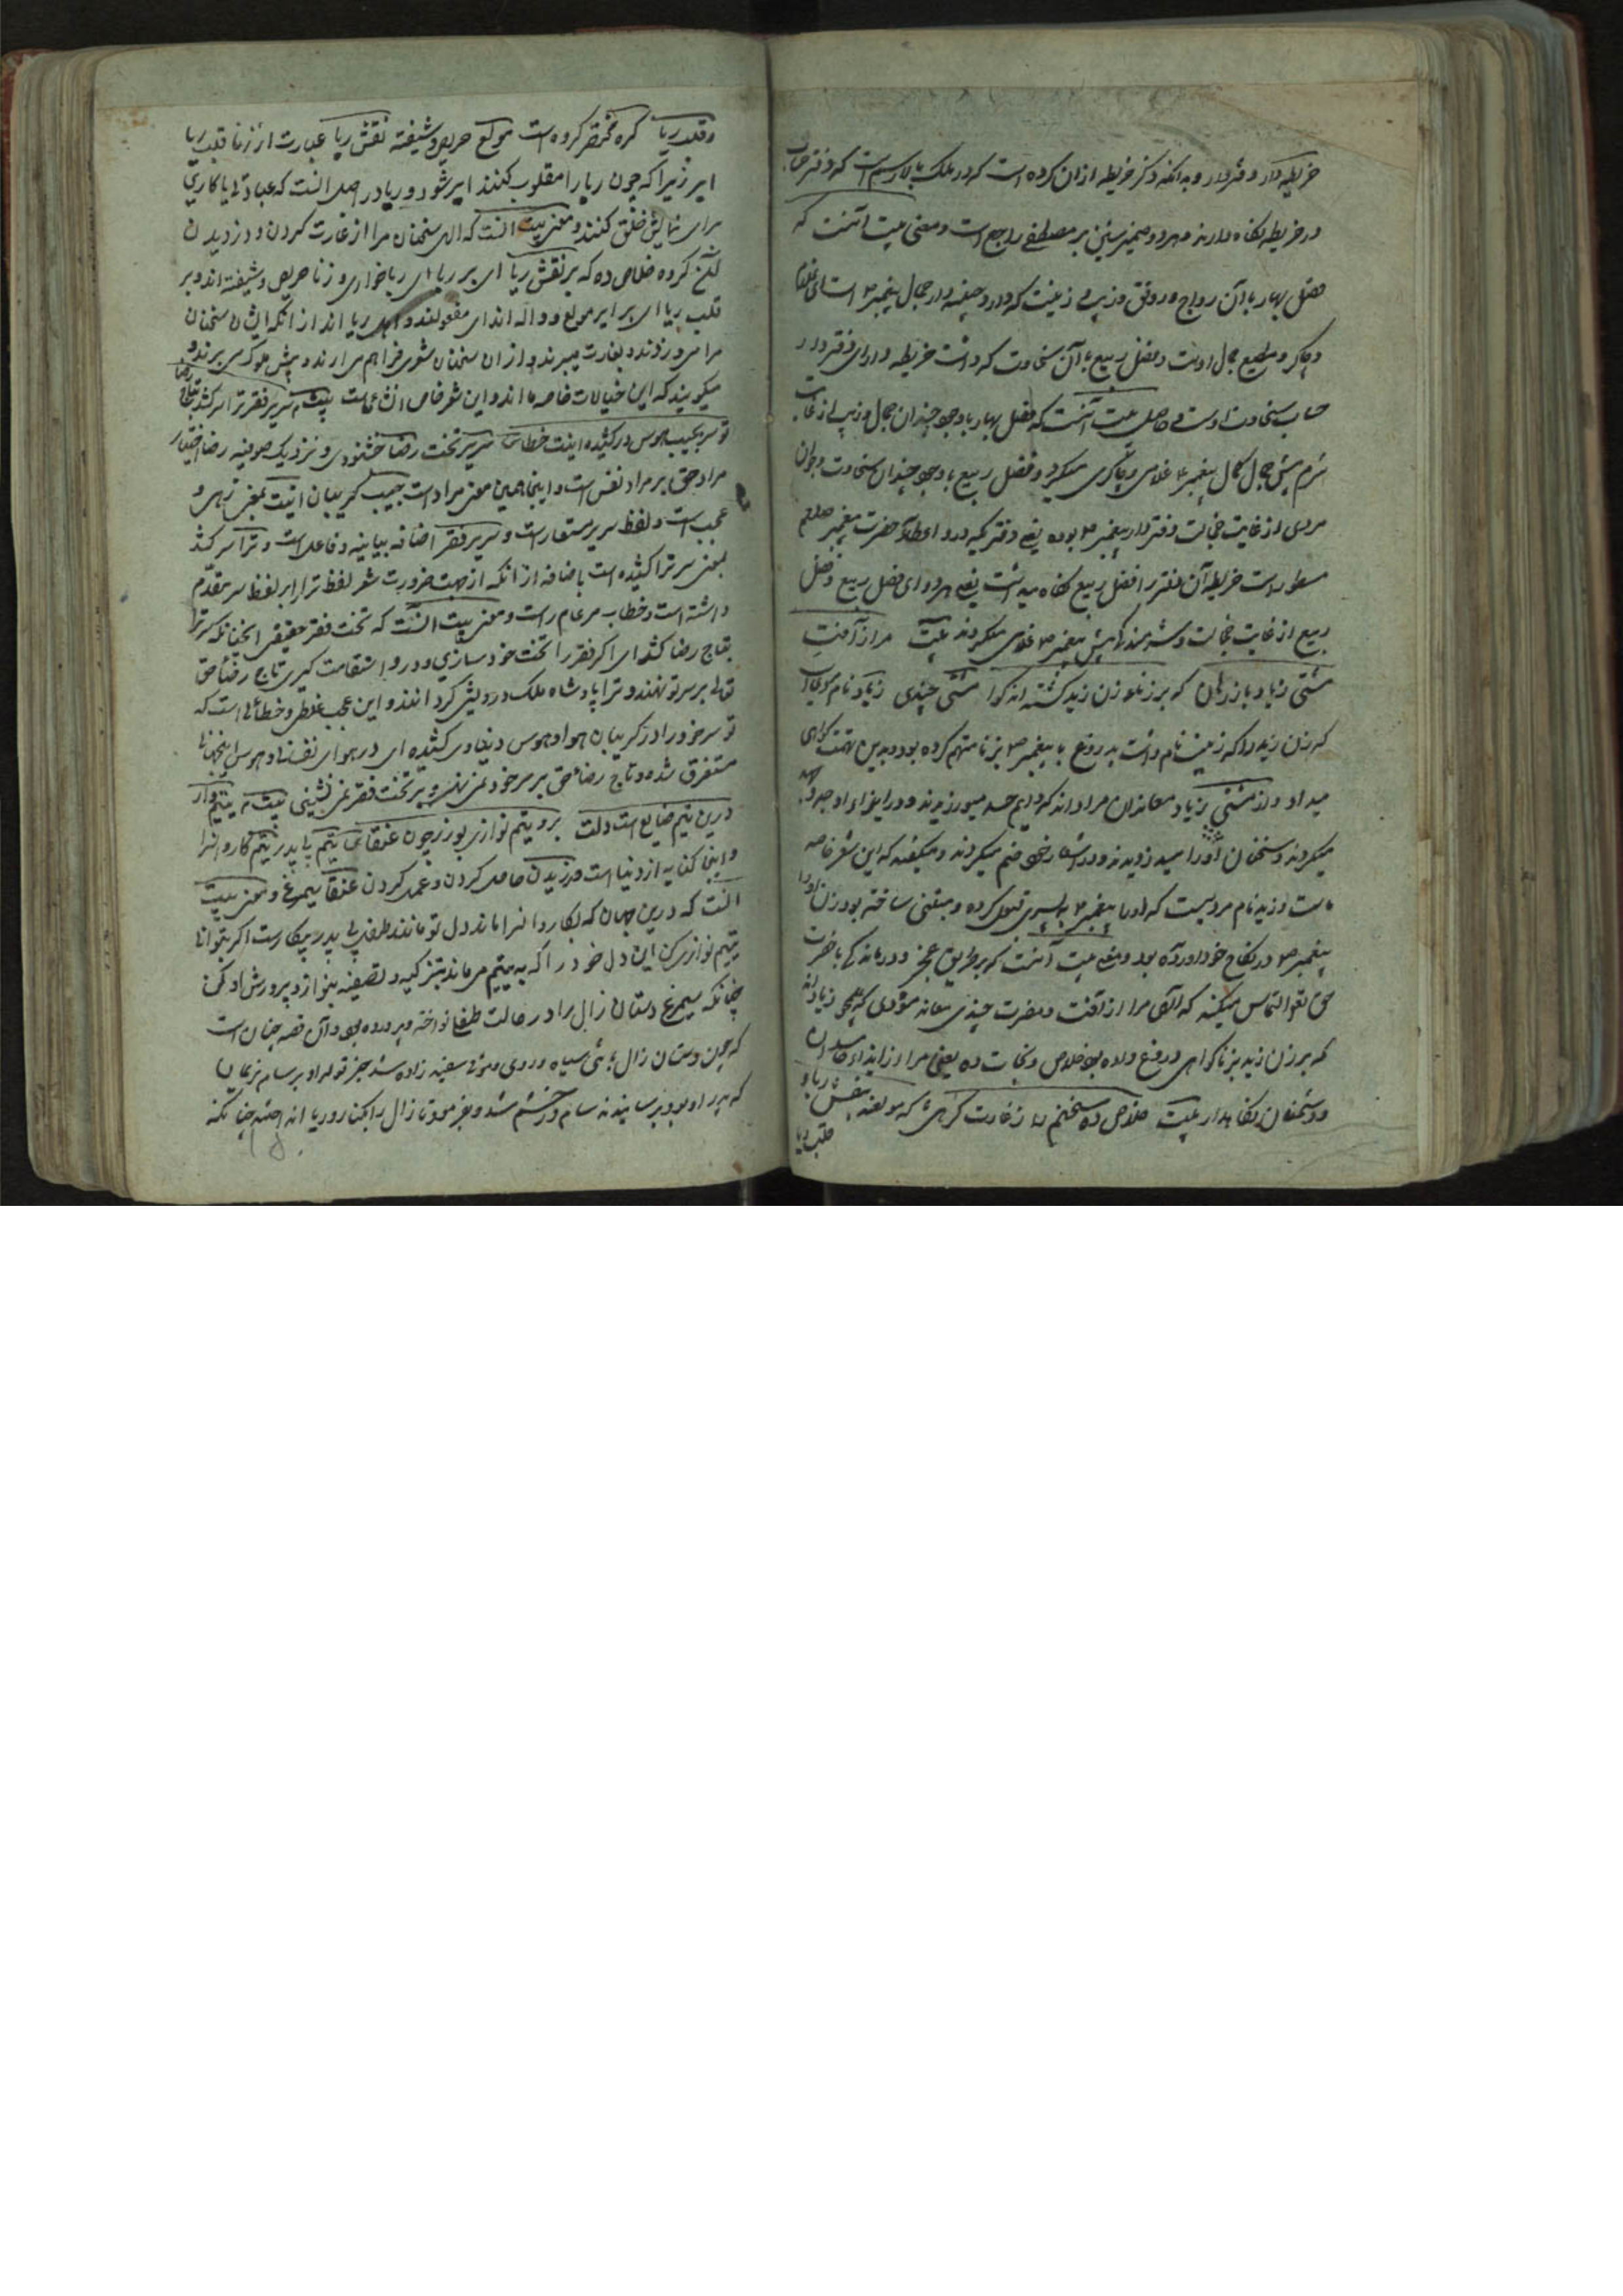 خریطه دار و دفتردار و بدانکه ذکر خریطه ازان کرده است که در ملک بالا رسم است که دفتر حساب
در خریطه نگاه دارند و هر دو ضمیر شین بر مصطفی راجع است و معنی بیت آنست که
فصل بهار با آن رواج و رونق و زیب و زینت که دارد جیفه دار جمال پیغمبر است ای غلام
و چاکر و مطیع جمال اوست و فصل ربیع با آن سخاوت که داشت خریطه دار ای دفتردار
حساب سخاوت اوست و حاصل بیت آنست که فصل بهار با وجود چندان جمال و زیب از غایت
شرم پیش جمال کمال پیغمبر غلامی و چاکری میکرد و فصل ربیع با وجود چندان سخاوت و جوان
مردی از غایت خجالت دفتردار پیغمبر بوده یعنی دفتر که درو عطاء حضرت پیغمبر صلعم
مسطور است خریطه آن دفتر را فصل ربیع نگاه میداشت یعنی هر دو ای فصل ربیع و فصل
ربیع از غایت خجالت و شرمندگی پیش پیغمبر غلامی میکردند بیت مرا از آفت
مشتی زیاد باز رهان که بر زنا زن زید گشته اند گوا مشتی چندی زیاد نام
که زن زید را که زینب نام داشت بدروغ با پیغمبر بزنا متهم کرده بود و بدین تهمت گواهی
میداد و از مشتی زیاد معاندان مراد اند که دایم حسد میورزیدند و در ایذای او جهد
میکردند و سخنان او را میدزدیدند و در اشعار خود ضم میکردند و میگفتند که این شعر خاصه
ماست و زید نام مردیست که او را پیغمبر به پسری قبول کرده و متبنی ساخته بود زن او را
پیغمبر در نکاح خود آورده بود و معنی بیت آنست که بر طریق عجز و درماندگی با حضرت
حق تعالی التماس میکند که الهی مرا از آفت و مضرت چندی معاند موذی که همچو زیاد اند
که بر زن زید بزنا گواهی دروغ داده بود خلاص و نجات ده یعنی مرا از ایذاء حاسدان
و دشمنان نگاهدار بیت خلاص ده سخنم را ز غارت گرهی که مولعند بنقش ریا و
قلب ریا
وقلب ریا گره مختصر گروه است مولع حریص و شیفته نقش ریا عبارت از زنا قلب ریا
ایر زیرا که چون ریا را مقلوب کنند ایر شود و ریا در اصل آنست که عبادتی یا کاری
برای نمایش خلق کنند و معنی بیت آنست که الهی سخنان مرا از غارت کردن و دزدیدن
آن گروه خلاص ده که بر نقش ریا ای بر ریا ای ریاخواری و زنا حریص و شیفته اند و بر
قلب ریا ای بر ایر مولع و واله اند ای مفعولند و اهل ریا اند از آنکه ایشان سخنان
مرا میدزدند و بغارت میبرند و از آن سخنان شعری فراهم می آرند و پیش ملوک می برند و
میگویند که این خیالات خاصه ما اند و این شعر خاص از ماست بیت سریر فقر ترا سر کشد بتاج رضا
تو سر بجیب هوس درکشیده اینت خطا سریر تخت رضا خشنودی و نزدیک صوفیه رضا اختیار
مراد حق بر مراد نفس است و اینجا همین معنی مراد است جیب گریبان اینت بمعنی زهی و
عجب است و لفظ سریر مستعار است و سریر فقر اضافه بیانیه و فاعل است و ترا سر کشد
بمعنی سر ترا کشیده است باضافه از آنکه از جهت ضرورت شعر لفظ ترا را بر لفظ سر مقدم
داشته است و خطاب مر عام راست و معنی بیت آنست که تخت فقر حقیقی آنچنانکه سر ترا
بتاج رضا کشد ای اگر فقر را تخت خود سازی و درو استقامت گیری تاج رضاء حق
تعالی بر سر تو نهند و ترا پادشاه ملک درویشی گردانند و این عجب غلطی و خطائی است که
تو سر خود را در گریبان هوا و هوس دنیاوی کشیده ای در هوای نفسانی و هوس اینجهانی
مستغرق شده و تاج رضاء حق بر سر خود نمی نهی و بر تخت فقر نمی نشینی بیت یتیم وار
درین تیم ضایع است دلت برو یتیم نوازی بورز چون عنقا یتیم بی پدر تیم کاروانسرا
و اینجا کنایه از دنیا است ورزیدن حاصل کردن و عمل کردن عنقا سیمرغ و معنی بیت
آنست که درین جهان که بکاروانسرا ماند دل تو مانند طفل بی پدر بیکار است اگر بتوانی
یتیم نوازی کن این دل خود را که به یتیم می ماند بتزکیه و تصفیه بنواز و پرورش او کن
چنانکه سیمرغ دستان زال را در حالت طفلی نواخته و پرورده بود و آن قصه چنان است
که چون دستان زال با تنی سیاه و روی و موی سفید زاده شد خبر تولد او بر سام نریمان
که پدر او بود برسانیدند سام در خشم شد و بفرمود تا زال را بکنار دریا انداختند چنانکه